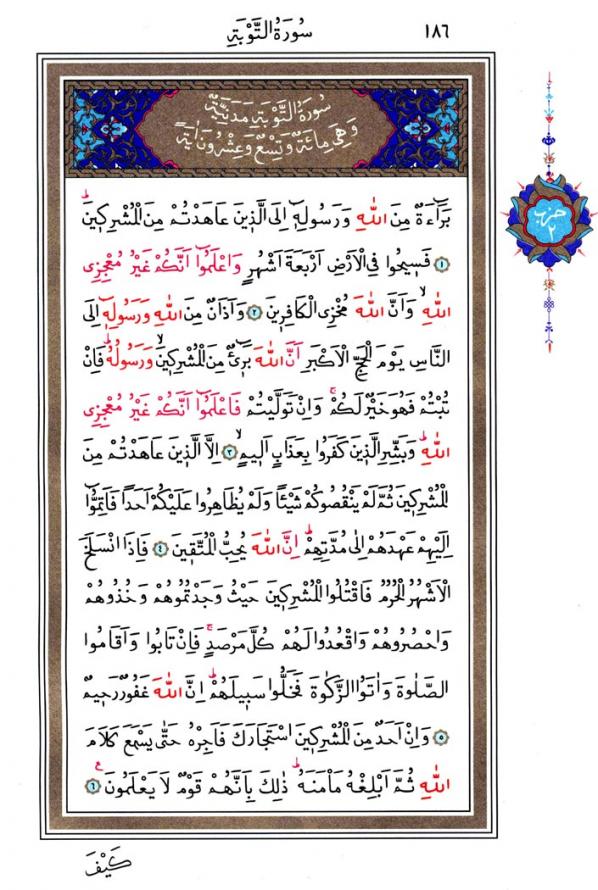 ١٨٦
سُورَةُ التَّوْبَةِ
سُورَةُ التَّوْبَةِ مَدَنِيَّةٌ
وَهِيَ مِائَةٌ وَتِسْعٌ وَعِشْرُونَ اٰيَةً
حزب
٢
بَرَٓاءَةٌ مِنَ اللّٰهِ وَرَسُولِه۪ٓ اِلَى الَّذ۪ينَ عَاهَدْتُمْ مِنَ الْمُشْرِك۪ينَۜ
﴿١﴾ فَس۪يحُوا فِي الْاَرْضِ اَرْبَعَةَ اَشْهُرٍ وَاعْلَمُٓوا اَنَّكُمْ غَيْرُ مُعْجِزِي
اللّٰهِۙ وَاَنَّ اللّٰهَ مُخْزِي الْكَافِر۪ينَ ﴿٢﴾ وَاَذَانٌ مِنَ اللّٰهِ وَرَسُولِه۪ٓ اِلَى
النَّاسِ يَوْمَ الْحَجِّ الْاَكْبَرِ اَنَّ اللّٰهَ بَر۪ٓيءٌ مِنَ الْمُشْرِك۪ينَۙ وَرَسُولُهُۜ فَاِنْ
تُبْتُمْ فَهُوَ خَيْرٌ لَكُمْۚ وَاِنْ تَوَلَّيْتُمْ فَاعْلَمُٓوا اَنَّكُمْ غَيْرُ مُعْجِزِي
اللّٰهِۜ وَبَشِّرِ الَّذ۪ينَ كَفَرُوا بِعَذَابٍ اَل۪يمٍۙ ﴿٣﴾ اِلَّا الَّذ۪ينَ عَاهَدْتُمْ مِنَ
الْمُشْرِك۪ينَ ثُمَّ لَمْ يَنْقُصُوكُمْ شَيْـًٔا وَلَمْ يُظَاهِرُوا عَلَيْكُمْ اَحَدًا فَاَتِمُّٓوا
اِلَيْهِمْ عَهْدَهُمْ اِلٰى مُدَّتِهِمْۜ اِنَّ اللّٰهَ يُحِبُّ الْمُتَّق۪ينَ ﴿٤﴾ فَاِذَا انْسَلَخَ
الْاَشْهُرُ الْحُرُمُ فَاقْتُلُوا الْمُشْرِك۪ينَ حَيْثُ وَجَدْتُمُوهُمْ وَخُذُوهُمْ
وَاحْصُرُوهُمْ وَاقْعُدُوا لَهُمْ كُلَّ مَرْصَدٍۚ فَاِنْ تَابُوا وَاَقَامُوا
الصَّلٰوةَ وَاٰتَوُا الزَّكٰوةَ فَخَلُّوا سَب۪يلَهُمْۜ اِنَّ اللّٰهَ غَفُورٌ رَح۪يمٌ
﴿٥﴾ وَاِنْ اَحَدٌ مِنَ الْمُشْرِك۪ينَ اسْتَجَارَكَ فَاَجِرْهُ حَتّٰى يَسْمَعَ كَلَامَ
اللّٰهِ ثُمَّ اَبْلِغْهُ مَأْمَنَهُۜ ذٰلِكَ بِاَنَّهُمْ قَوْمٌ لَا يَعْلَمُونَ۟ ﴿٦﴾
كَيْفَ